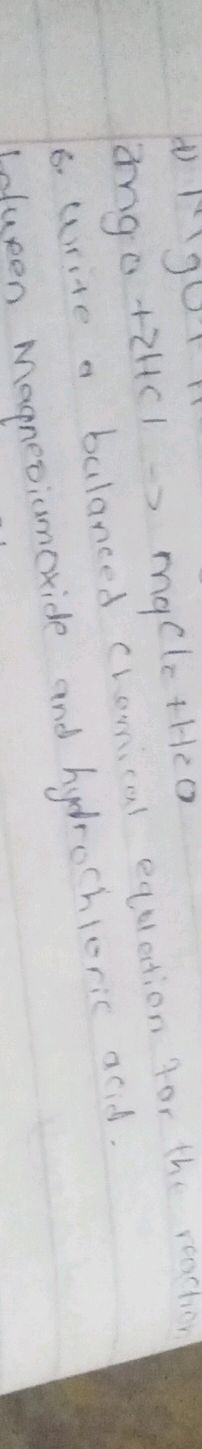 d) MgO + H
2mgo +2HCl -> mgCl2 + H2O
6. Write a balanced chemical equation for the reaction
between Magnesiumoxide and hydrochloric acid.